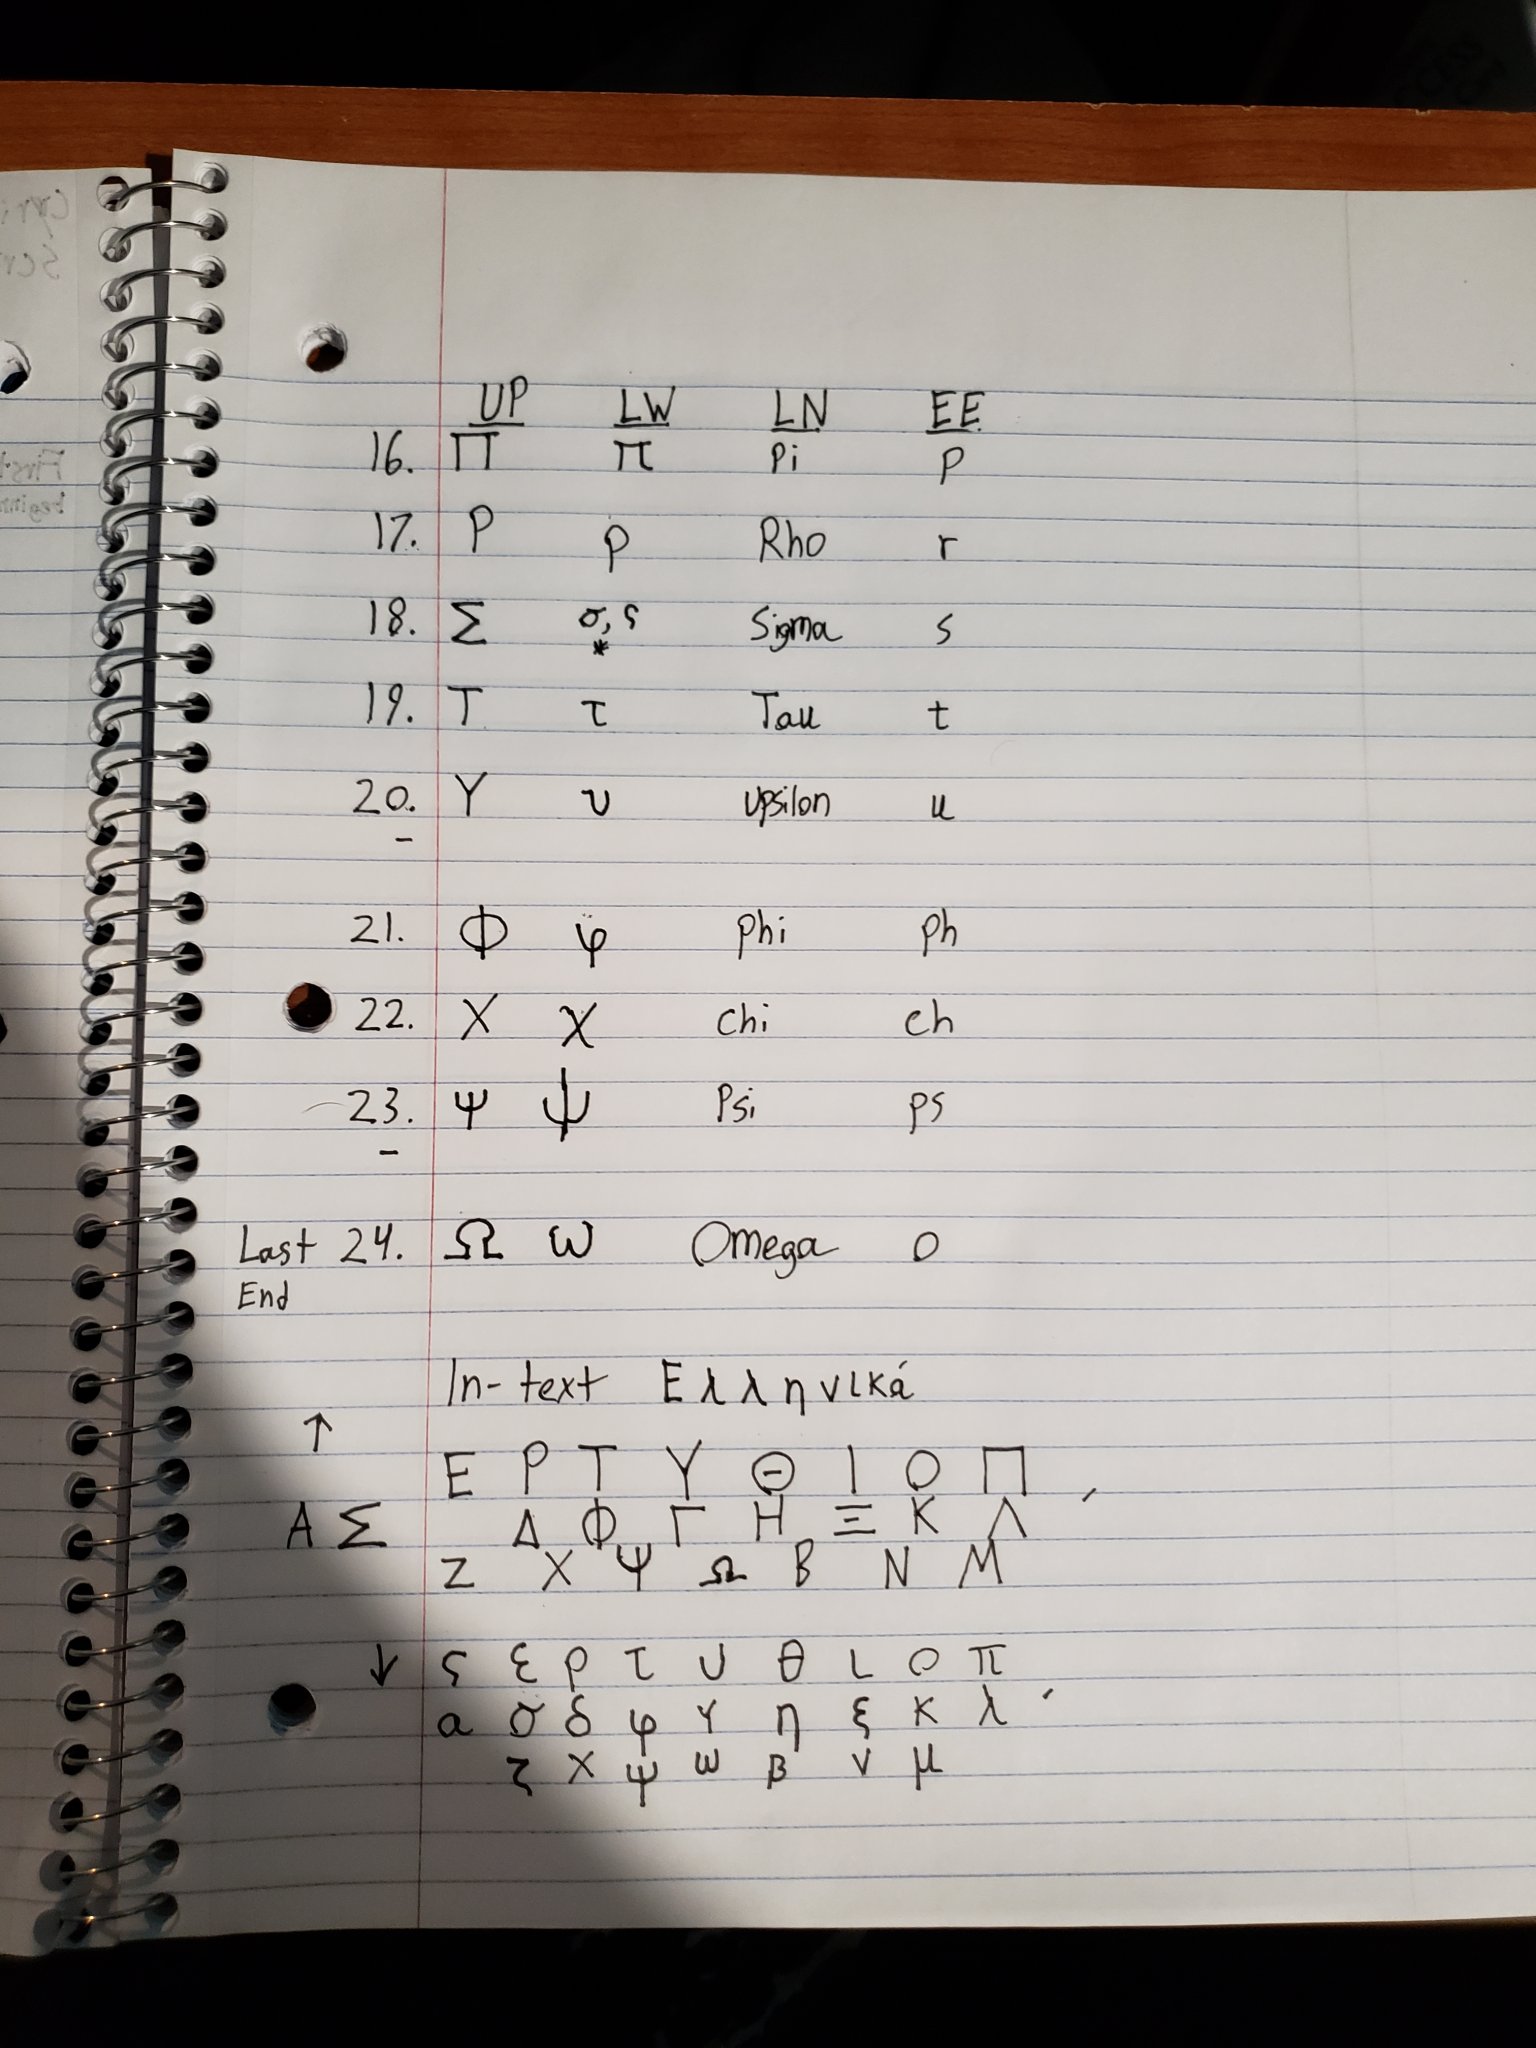 UP LW LN EE
16. Π π Pi p
17. Ρ ρ Rho r
18. Σ σ, ς Sigma s
*
19. Τ τ Tau t
20. Υ υ upsilon u
-
21. Φ φ phi ph
22. Χ χ chi ch
23. Ψ ψ Psi ps
-
Last 24. Ω ω Omega o
End
In-text Ελληνικά
↑
Ε Ρ Τ Υ Θ Ι Ο Π
Α Σ Δ Φ Γ Η Ξ Κ Λ ΄
Ζ Χ Ψ Ω Β Ν Μ
↓ ς ε ρ τ υ θ ι ο π
α σ δ φ γ η ξ κ λ ΄
ζ χ ψ ω β ν μ